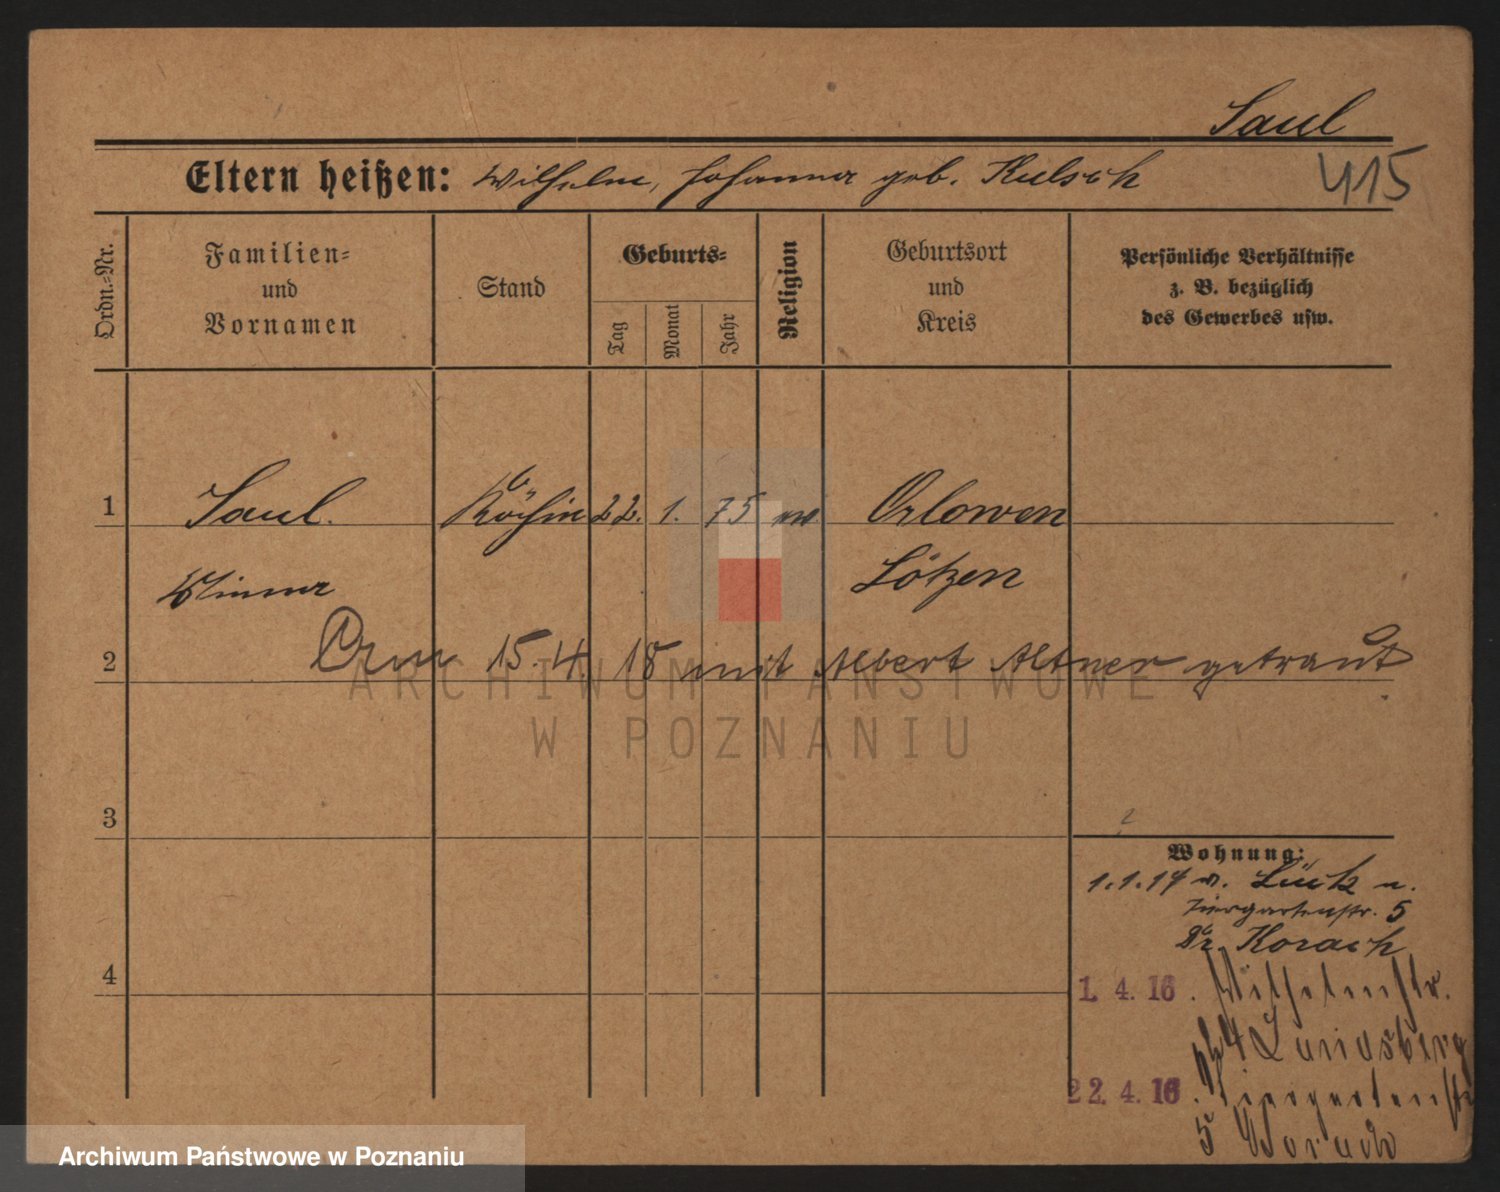 Saul
415
Eltern heißen: Wilhelm, Johanna geb. Kulsch
Ordn.-Nr.
Familien- und Vornamen
Stand
Geburts-
Tag
Monat
Jahr
Religion
Geburtsort und Kreis
Persönliche Verhältnisse
z. B. bezüglich
des Gewerbes usw.
1 Saul. Köchin 22. 1. 75 Orlowen
Minna Lötzen
2 Am 15.4. 18 mit Albert Altner getraut
3
4
Wohnung:
1.1.14 v. Lück n.
Tiergartenstr. 5
Dr. Korach
1. 4. 16. Wilhelmstr.
24 Landsberg
22. 4. 16. Tiergartenstr
5 Korach
ARCHIWUM PAŃSTWOWE
W POZNANIU
Archiwum Państwowe w Poznaniu